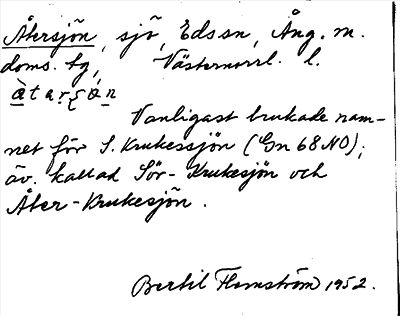 Återsjön, sjö, Eds sn, Ång. m.
doms. tg, Västernorrl. l.
Vanligast brukade nam-
net för S. Krukessjön (Gn 68 NO);
äv. kallad Sör-Krukesjön och
Åter-Krukesjön.
Bertil Flemström 1952.